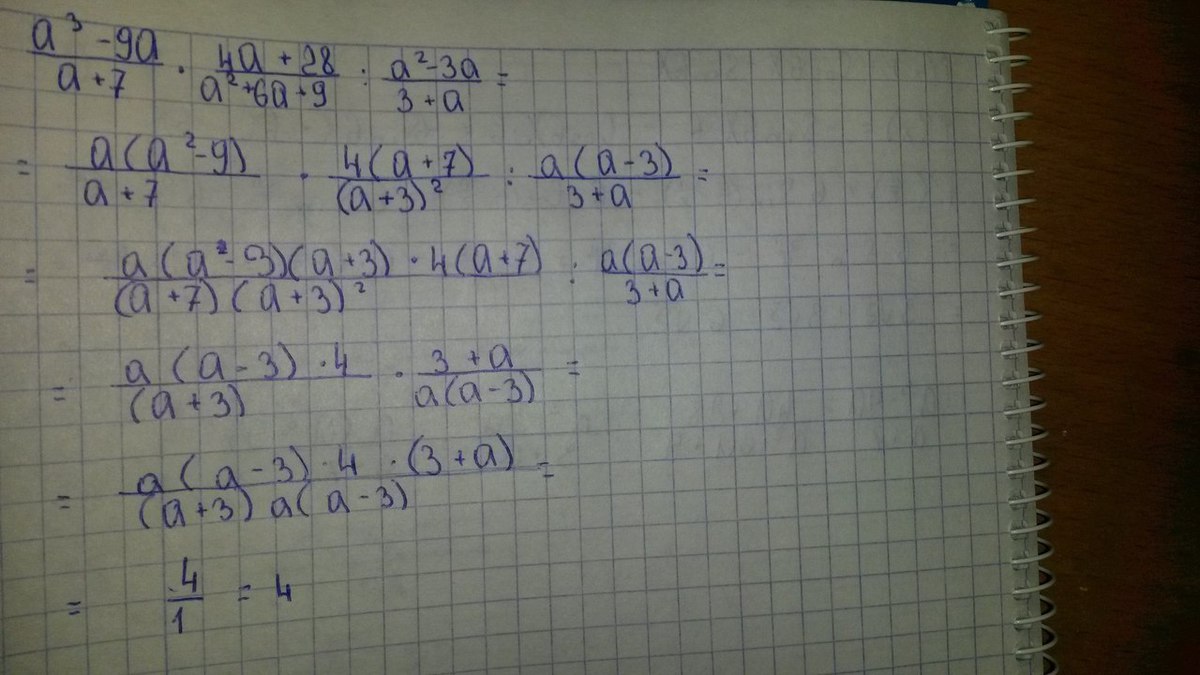 a³ - 9a / a + 7 · 4a + 28 / a² + 6a + 9 : a² - 3a / 3 + a =
= a(a² - 9) / a + 7 · 4(a + 7) / (a + 3)² : a(a - 3) / 3 + a =
= a(a - 3)(a + 3) · 4(a + 7) / (a + 7)(a + 3)² : a(a - 3) / 3 + a =
= a(a - 3) · 4 / (a + 3) · 3 + a / a(a - 3) =
= a(a - 3) · 4 · (3 + a) / (a + 3) a(a - 3) =
= 4 / 1 = 4